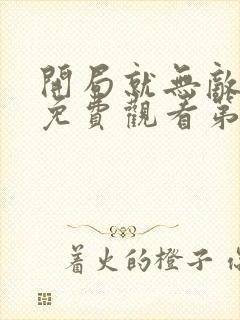 開局就無敵
免費觀看第
着火的橙子